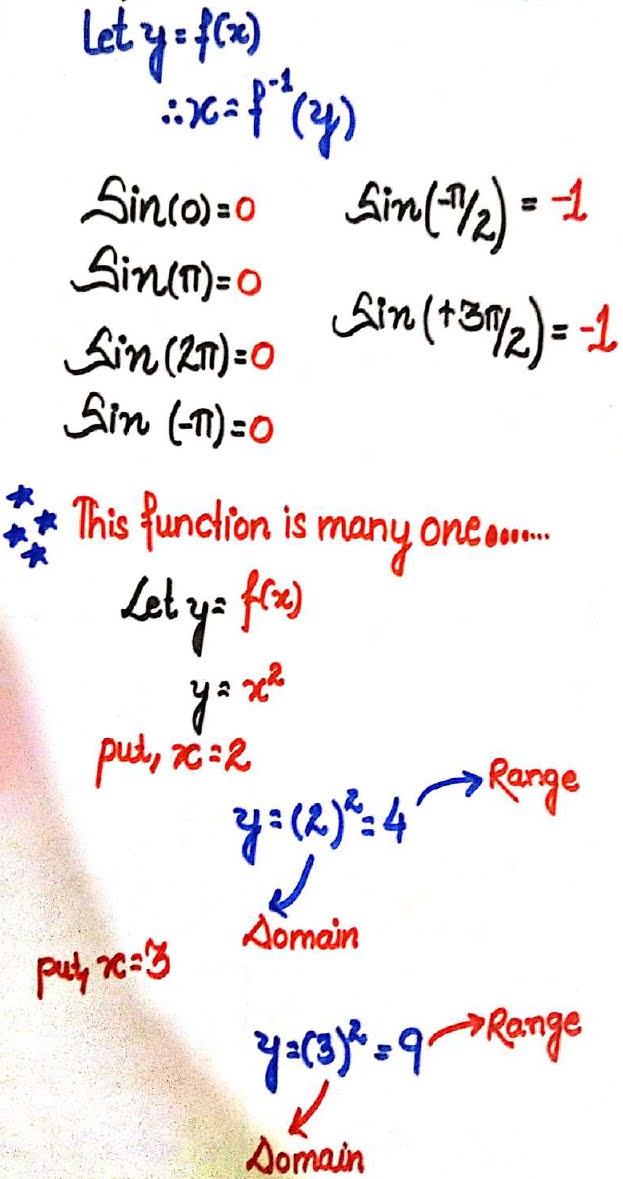 Let y = f(x)
∴ x = f⁻¹(y)
Sin(0) = 0
Sin(-π/2) = -1
Sin(π) = 0
Sin(+3π/2) = -1
Sin(2π) = 0
Sin (-π) = 0
This function is many one.......
Let y = f(x)
y = x²
put, x = 2
y = (2)² = 4 → Range
Domain
put, x = 3
y = (3)² = 9 → Range
Domain